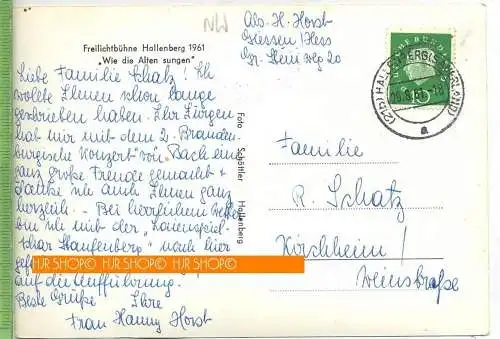 NW
Abs. H. Horst
Giessen/Hess
Gr. Steinweg 20
Freilichtbühne Hallenberg 1961
"Wie die Alten sungen"
Liebe Familie Schatz! Ich
wollte Ihnen schon lange
geschrieben haben. Ihr Jürgen
hat mir mit dem 2. Branden-
burgische Konzert von Bach eine
ganz große Freude gemacht u.
danke ich auch Ihnen ganz
herzlich. - Bei herrlichem Wetter
bin ich mit der "Laienspiel-
schar Staufenberg" nach hier
auf die Aufführung.
Beste Grüße Ihre
Frau Hanny Horst
Foto Schöttler Hallenberg
DEUTSCHE BUNDESPOST
10
(21b) HALLENBERG (SAUERLAND)
a
Familie
R. Schatz
Kirchheim/
Weinstraße
HJR SHOP© HJR SHOP© HJR SHOP©